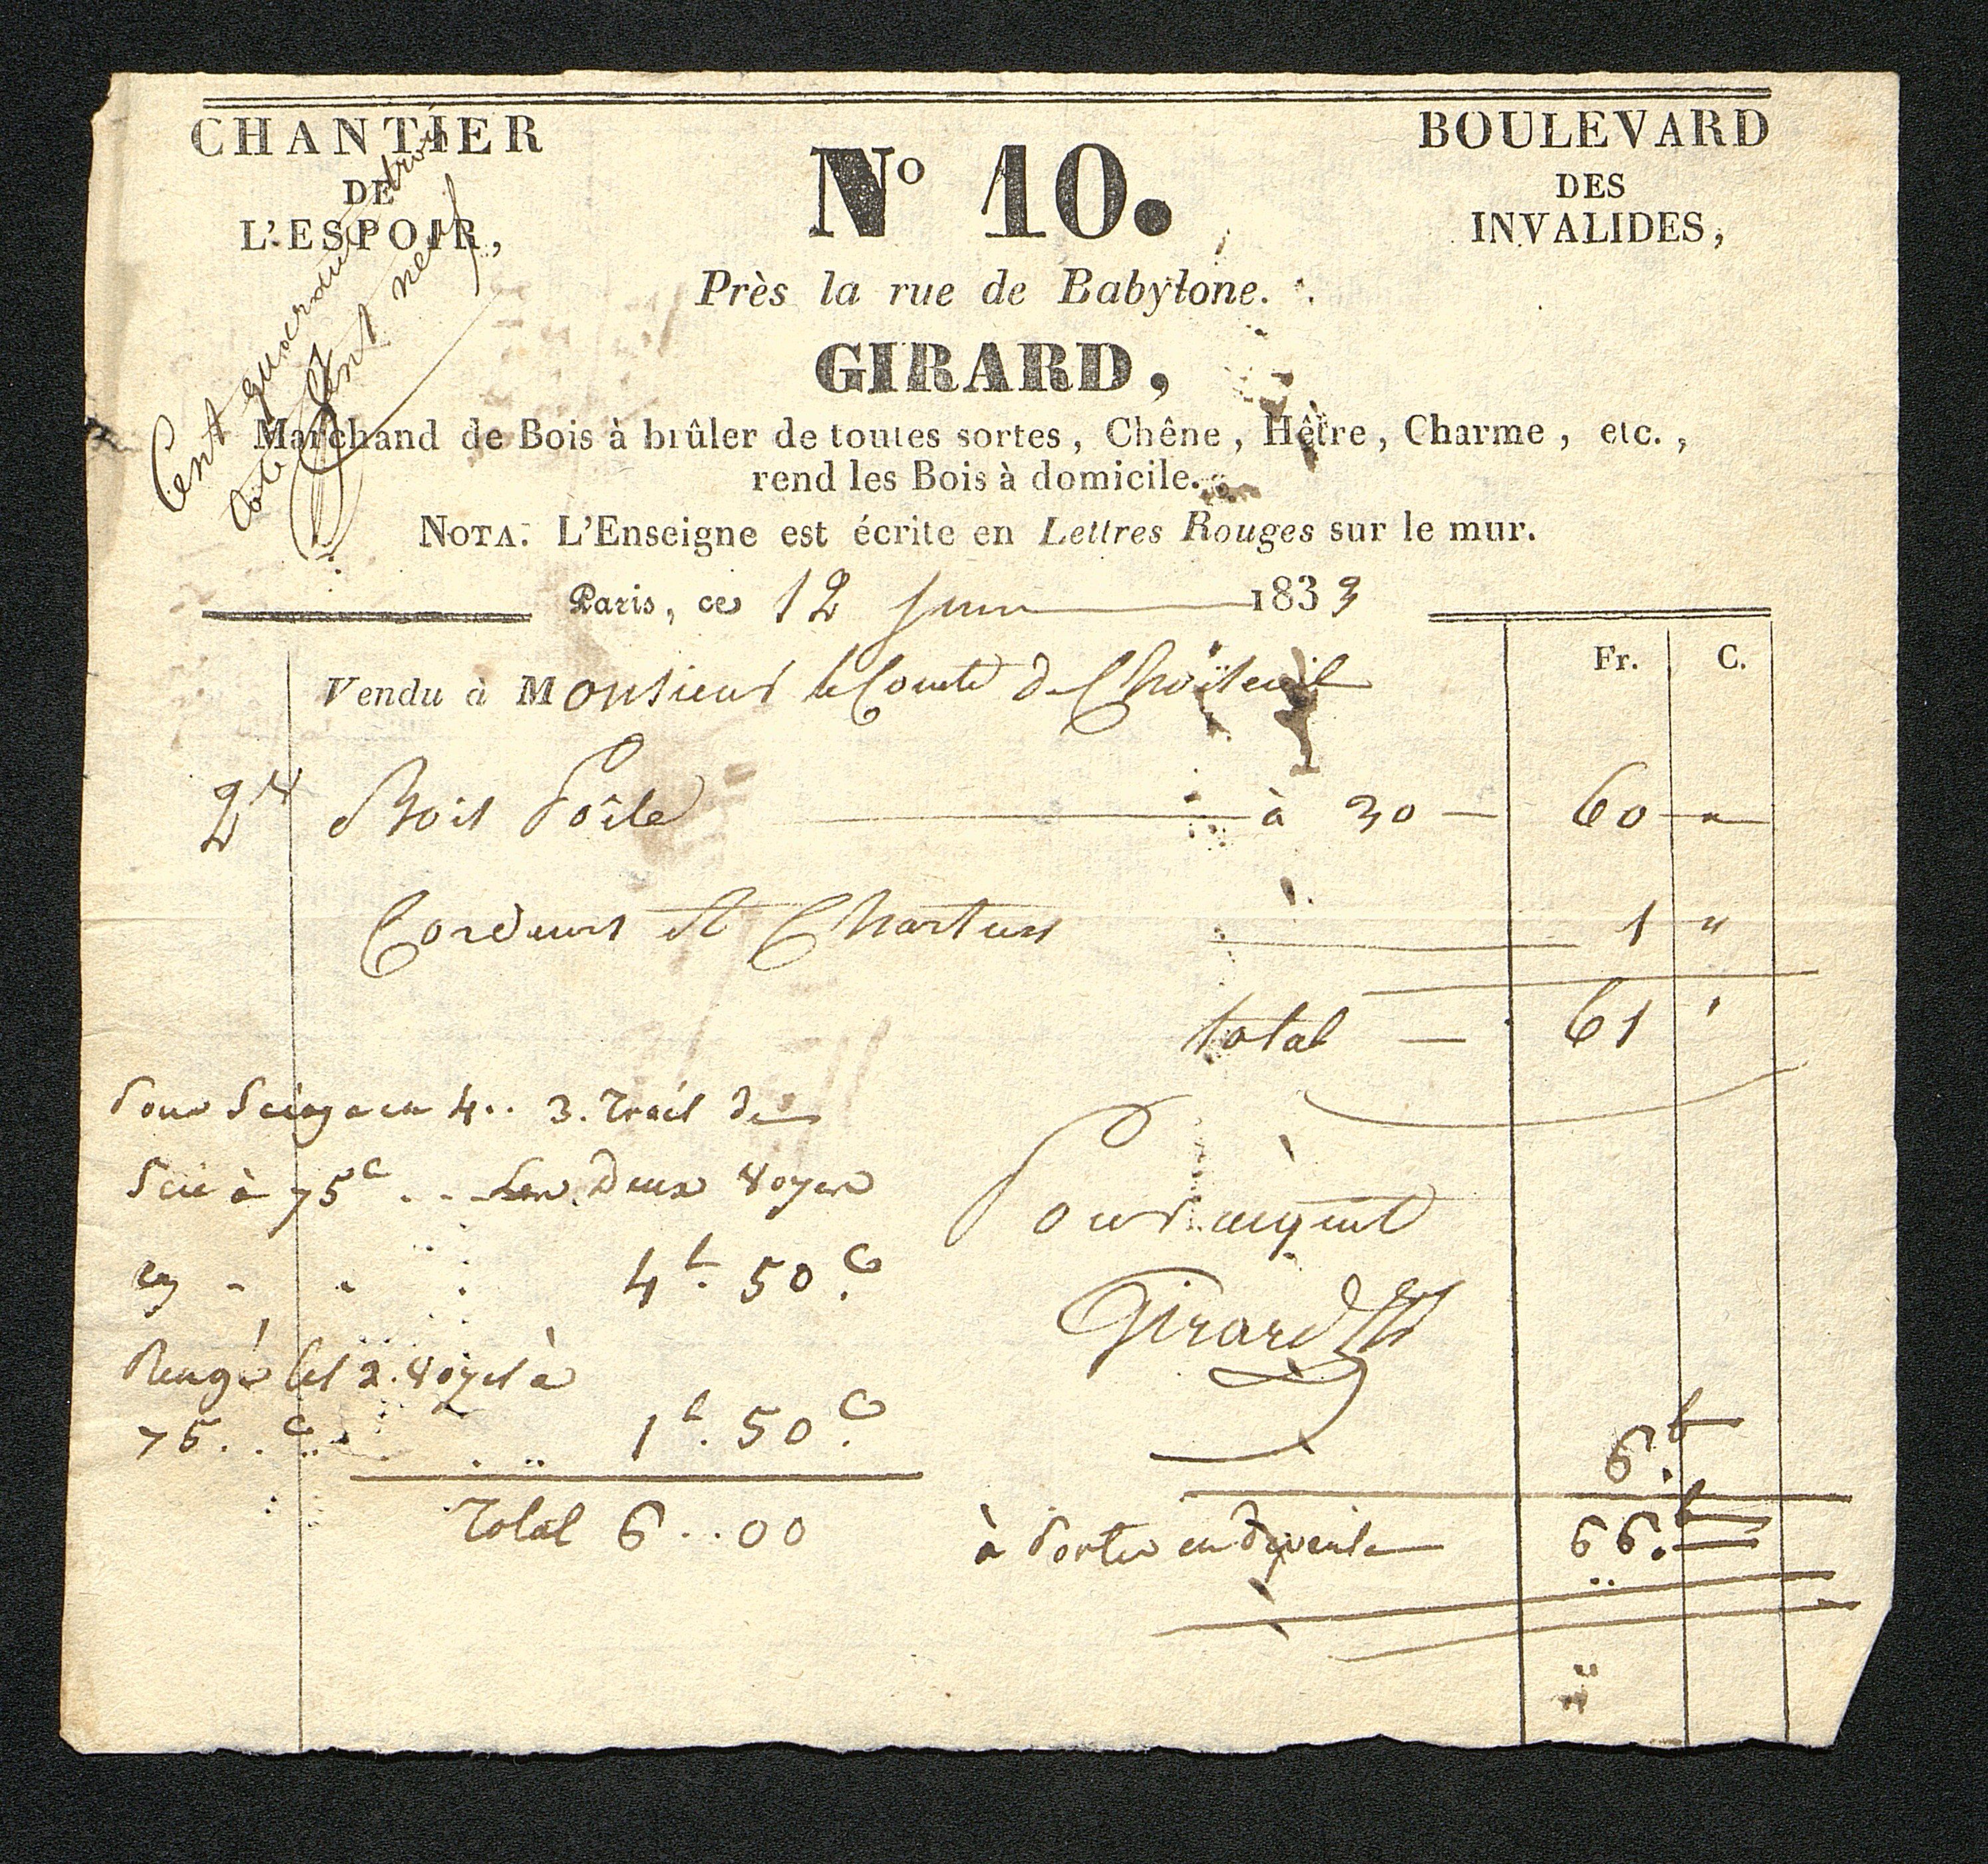 CHANTIER
DE
L'ESPOIR,
Nº 10.
BOULEVARD
DES
INVALIDES,
Près la rue de Babylone.
GIRARD,
Marchand de Bois à brûler de toutes sortes, Chêne, Hêtre, Charme, etc.,
rend les Bois à domicile.
NOTA. L'Enseigne est écrite en Lettres Rouges sur le mur.
Cent quarante trois
Cote Cent neuf
Paris, ce 12 Juin 1833
Fr. C.
Vendu à Monsieur le Comte de Choiseuil
2 Bois Poîle à 30 — 60 "
Cordeurs et Charteurs 1 "
total — 61 "
Pour Sciage en 4.. 3. trait de
Scie à 75c .. Les Deux voyes
4 50 c
Rengé les 2. voyes à
75.. c 1 50 c
Total 6..00
Pour acquit
Girard
6
à Porter en 66